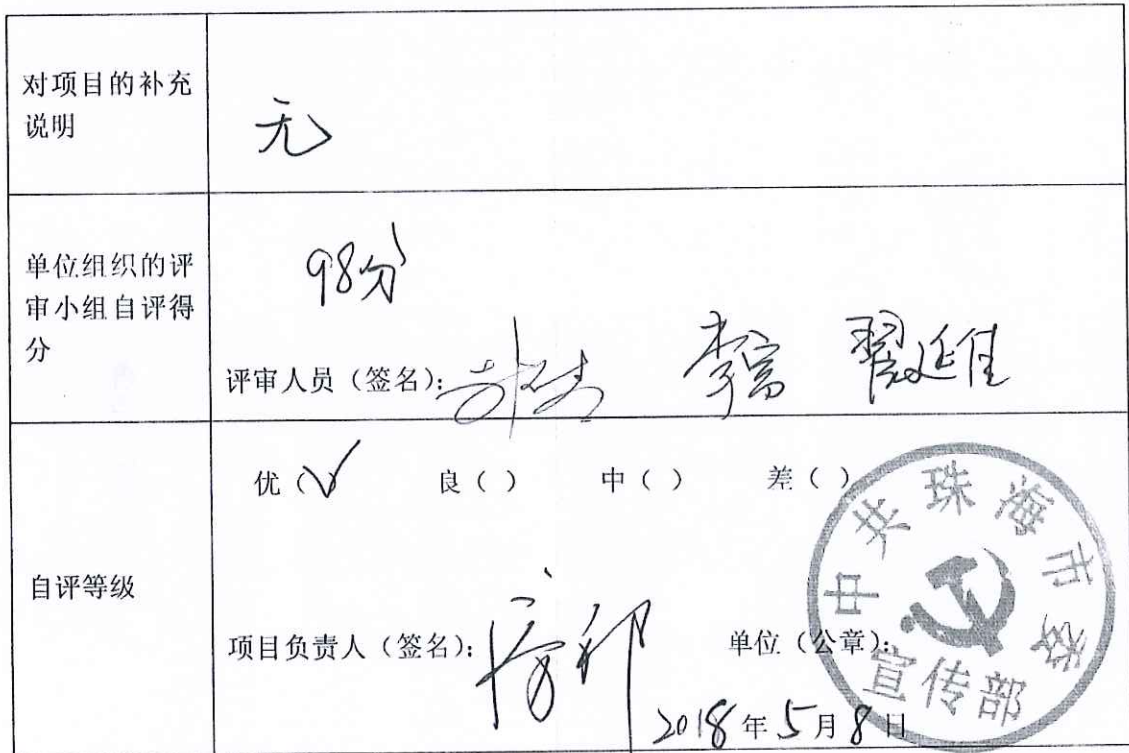 对项目的补充
说明
无
单位组织的评
审小组自评得
分
98分
评审人员（签名）： 李富 翟延佳
自评等级
优（√） 良（ ） 中（ ） 差（ ）
项目负责人（签名）： 单位（公章）：
2018年5月8日
中共珠海市委
宣传部